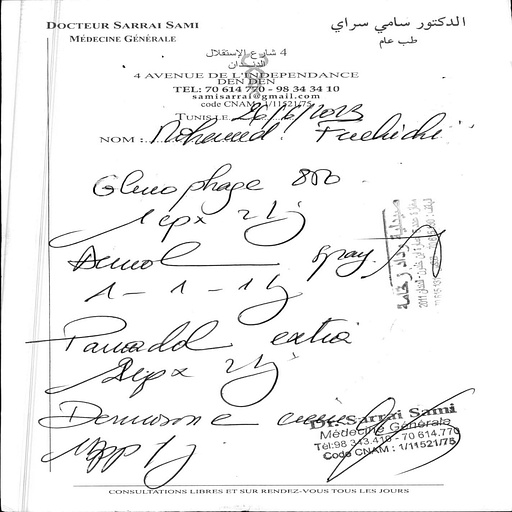 DOCTEUR SARRAI SAMI
MÉDECINE GÉNÉRALE
الدكتور سامي سراي
طب عام
4 شارع الإستقلال
الدندان
4 AVENUE DE L'INDEPENDANCE
DEN DEN
TEL: 70 614 770 - 98 34 34 10
samisarrai@gmail.com
code CNAM: 1/11521/75
TUNIS LE 26/6/2023
NOM : Mohamed
Glucophage 850
1cp x 2/j
spray
1 - 1 - 1/j
Panadol extra
x 2/j
Dermosone
صيدلية
Dr. Sarrai Sami
Médecine Générale
Tél: 98 343 410 - 70 614.770
Code CNAM : 1/11521/75
CONSULTATIONS LIBRES ET SUR RENDEZ-VOUS TOUS LES JOURS